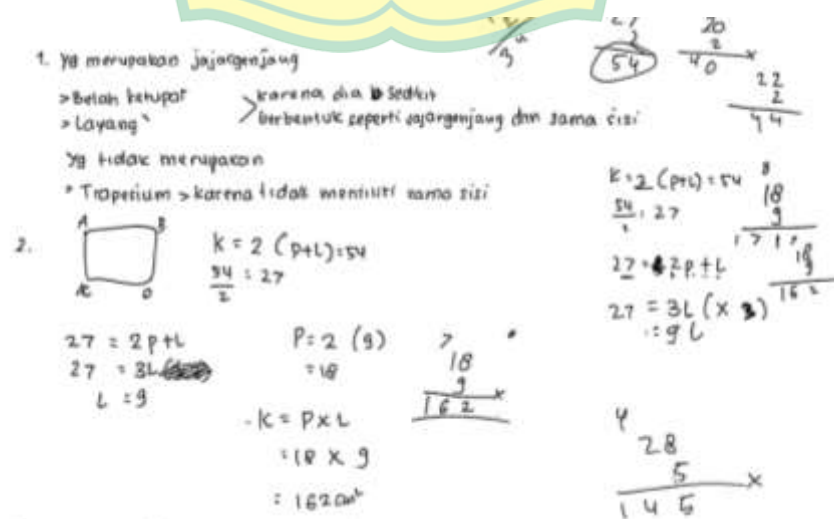 1. yg merupakan jajargenjang
> Belah ketupat
> Layang"
> karena dia sedikit
berbentuk seperti jajargenjang dan sama sisi
yg tidak merupakan
* Trapesium > karena tidak memiliki sama sisi
2.
A B
D
K = 2 (p+L) = 54
54/2 = 27
27 = 2p+L
27 = 3L
L = 9
P = 2 (9)
= 18
- K = P x L
= 18 x 9
= 162 cm²
7
18
9 x
162
54
20
2 x
40
22
2
44
K = 2 (p+L) = 54
54/2 = 27
27 = 2p+L
27 = 3L (x 3)
= 9 L
18
9
171
18
9
162
4
28
5 x
145